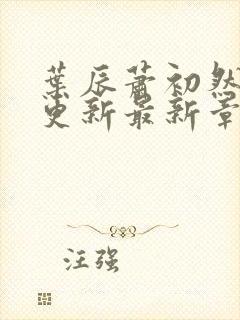 葉辰蕭初然
更新最新章
汪强